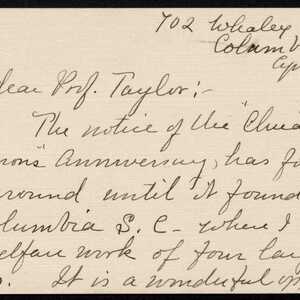 702 Whaley
Colum
Dear Prof. Taylor:-
The notice of the "
Anniversary, has
around until it found
Columbia S. C. - where I
welfare work of four
It is a wonderful